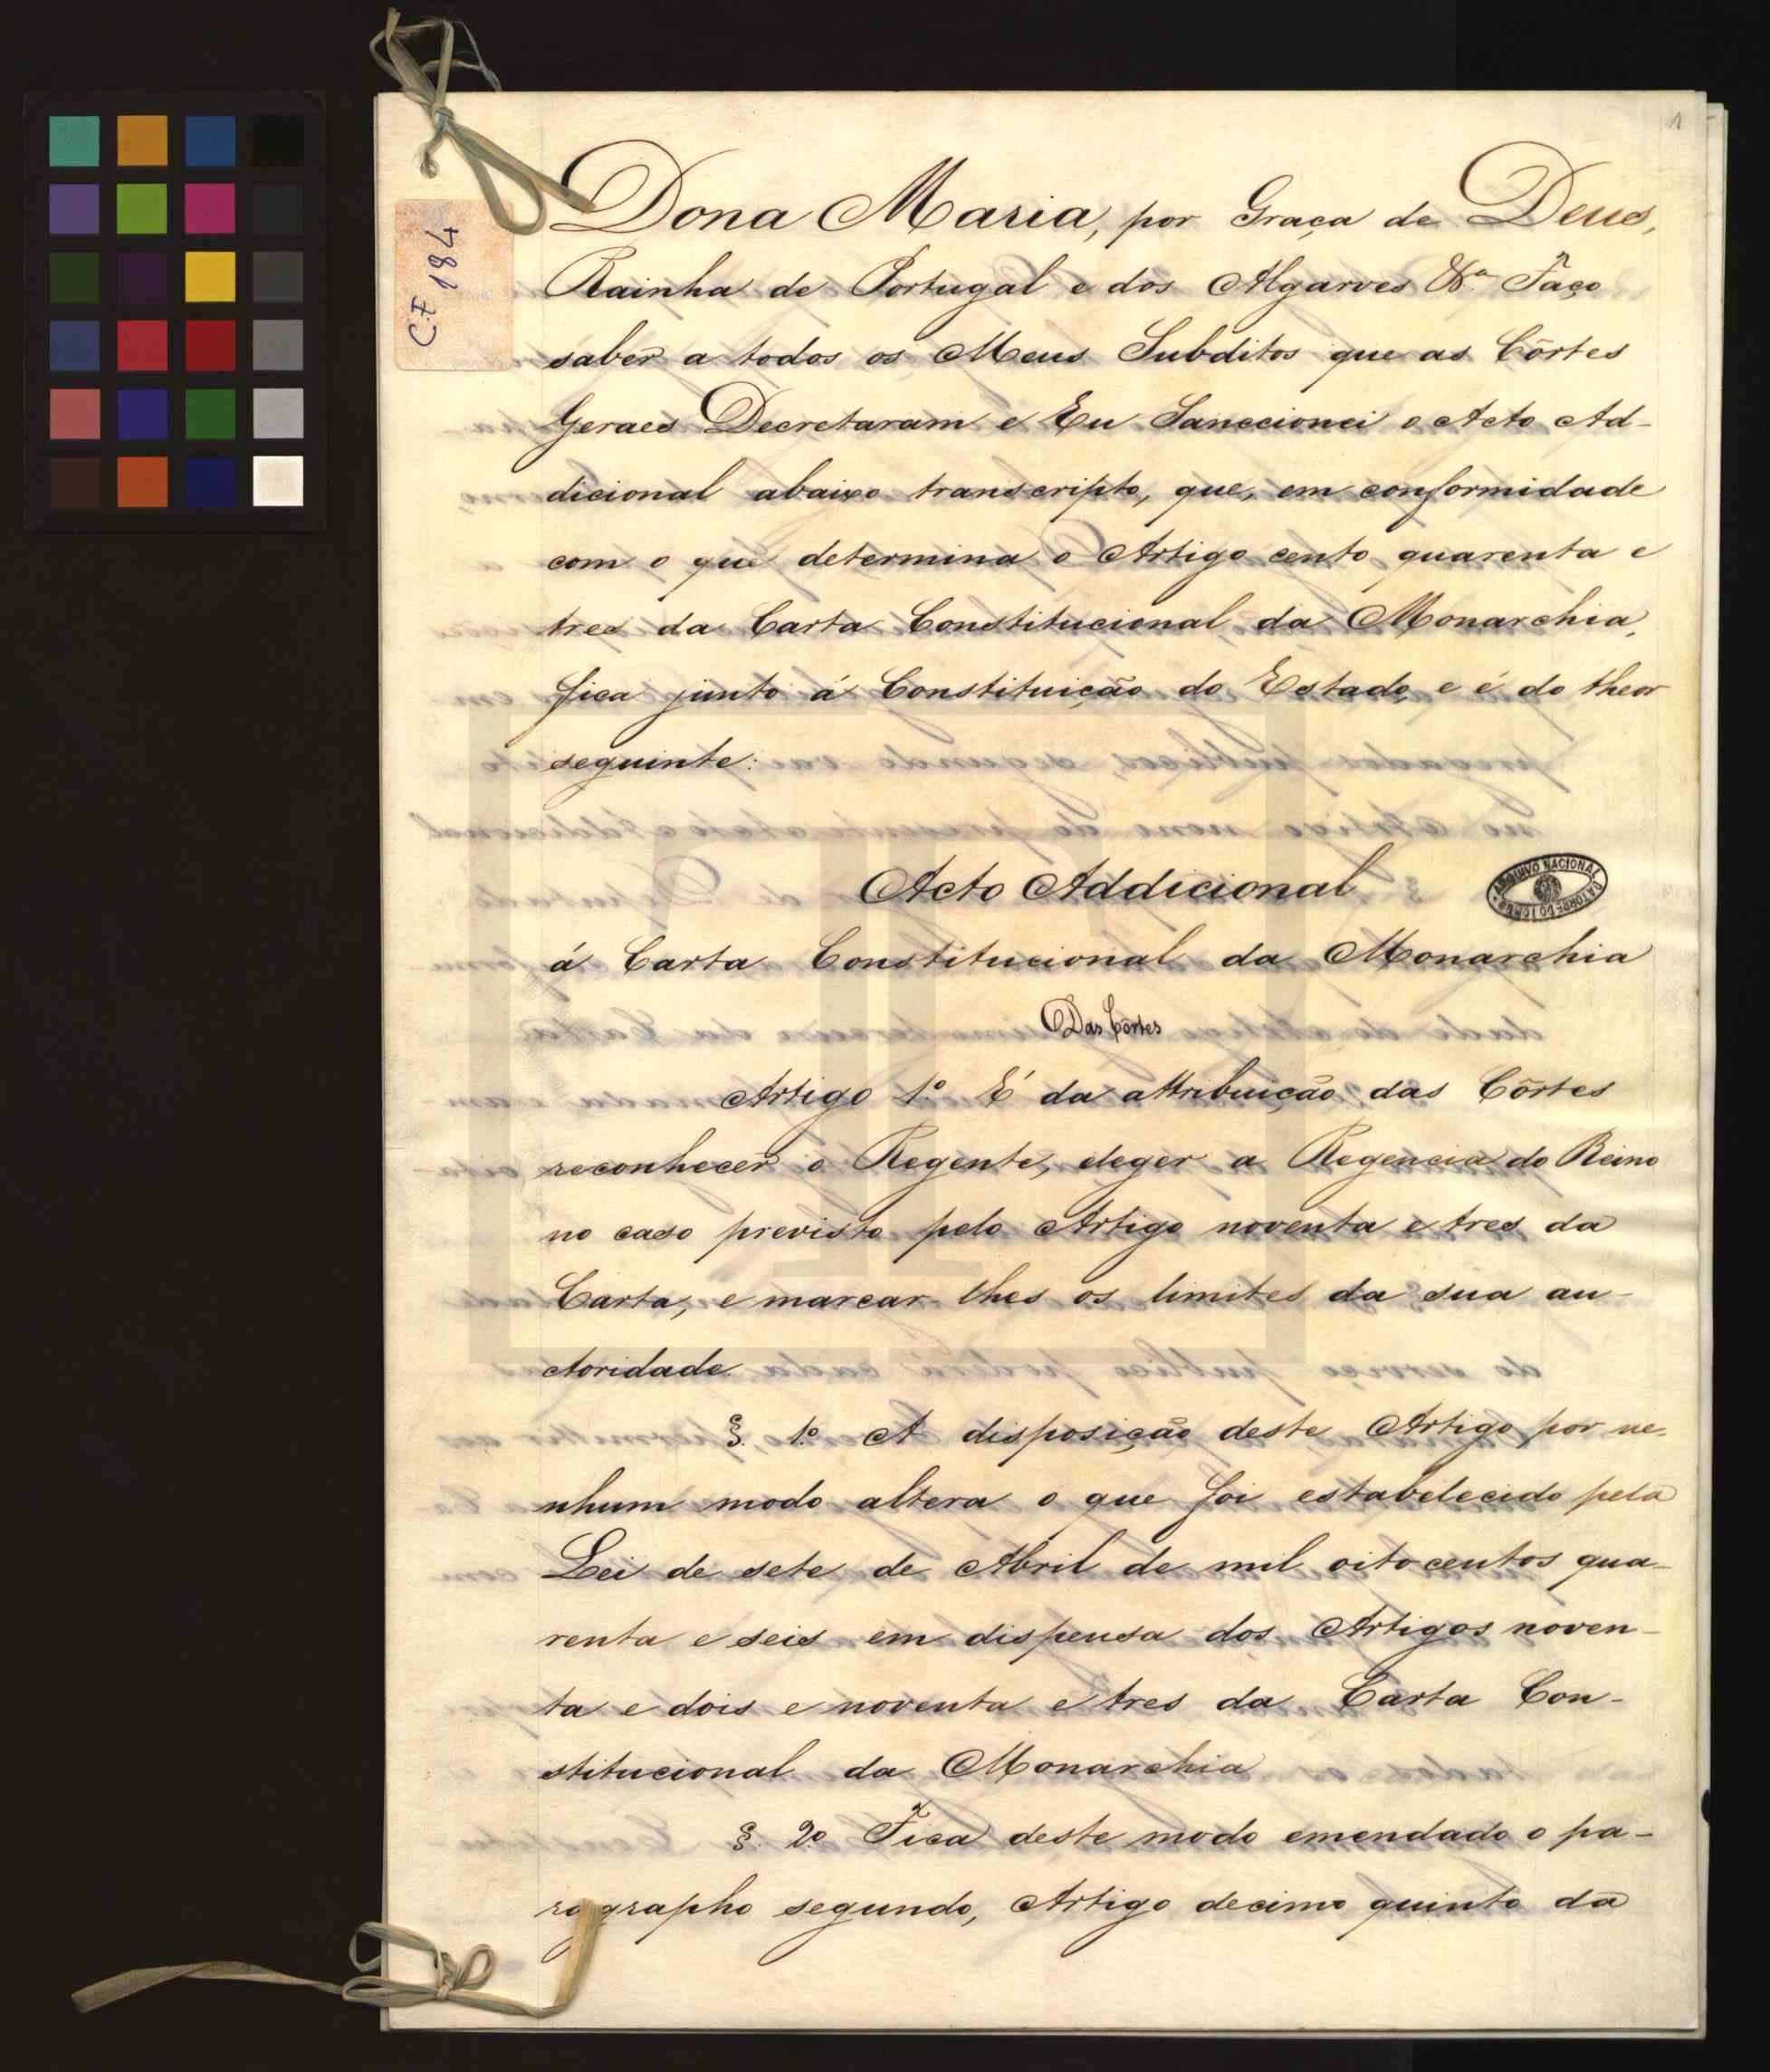 1
CF 184
Dona Maria, por Graça de Deus,
Rainha de Portugal e dos Algarves &ª Faço
saber a todos os Meus Subditos que as Côrtes
Geraes Decretaram e Eu Sanccionei o Acto Ad-
dicional abaixo transcripto, que, em conformidade
com o que determina o Artigo cento quarenta e
tres da Carta Constitucional da Monarchia,
fica junto á Constituição do Estado, e é do theor
seguinte:
Acto Addicional
ARQUIVO NACIONAL DA TORRE DO TOMBO
á Carta Constitucional da Monarchia
Das Côrtes
Artigo 1º É da attribuição das Côrtes
reconhecer o Regente, eleger a Regencia do Reino
no caso previsto pelo Artigo noventa e tres da
Carta, e marcar-lhes os limites da sua au-
ctoridade.
§. 1º A disposição deste Artigo por ne-
nhum modo altera o que foi estabelecido pela
Lei de sete de Abril de mil oitocentos qua-
renta e seis em dispensa dos Artigos noven-
ta e dois e noventa e tres da Carta Con-
stitucional da Monarchia
§. 2º Fica deste modo emendado o pa-
ragrapho segundo, Artigo decimo quinto da